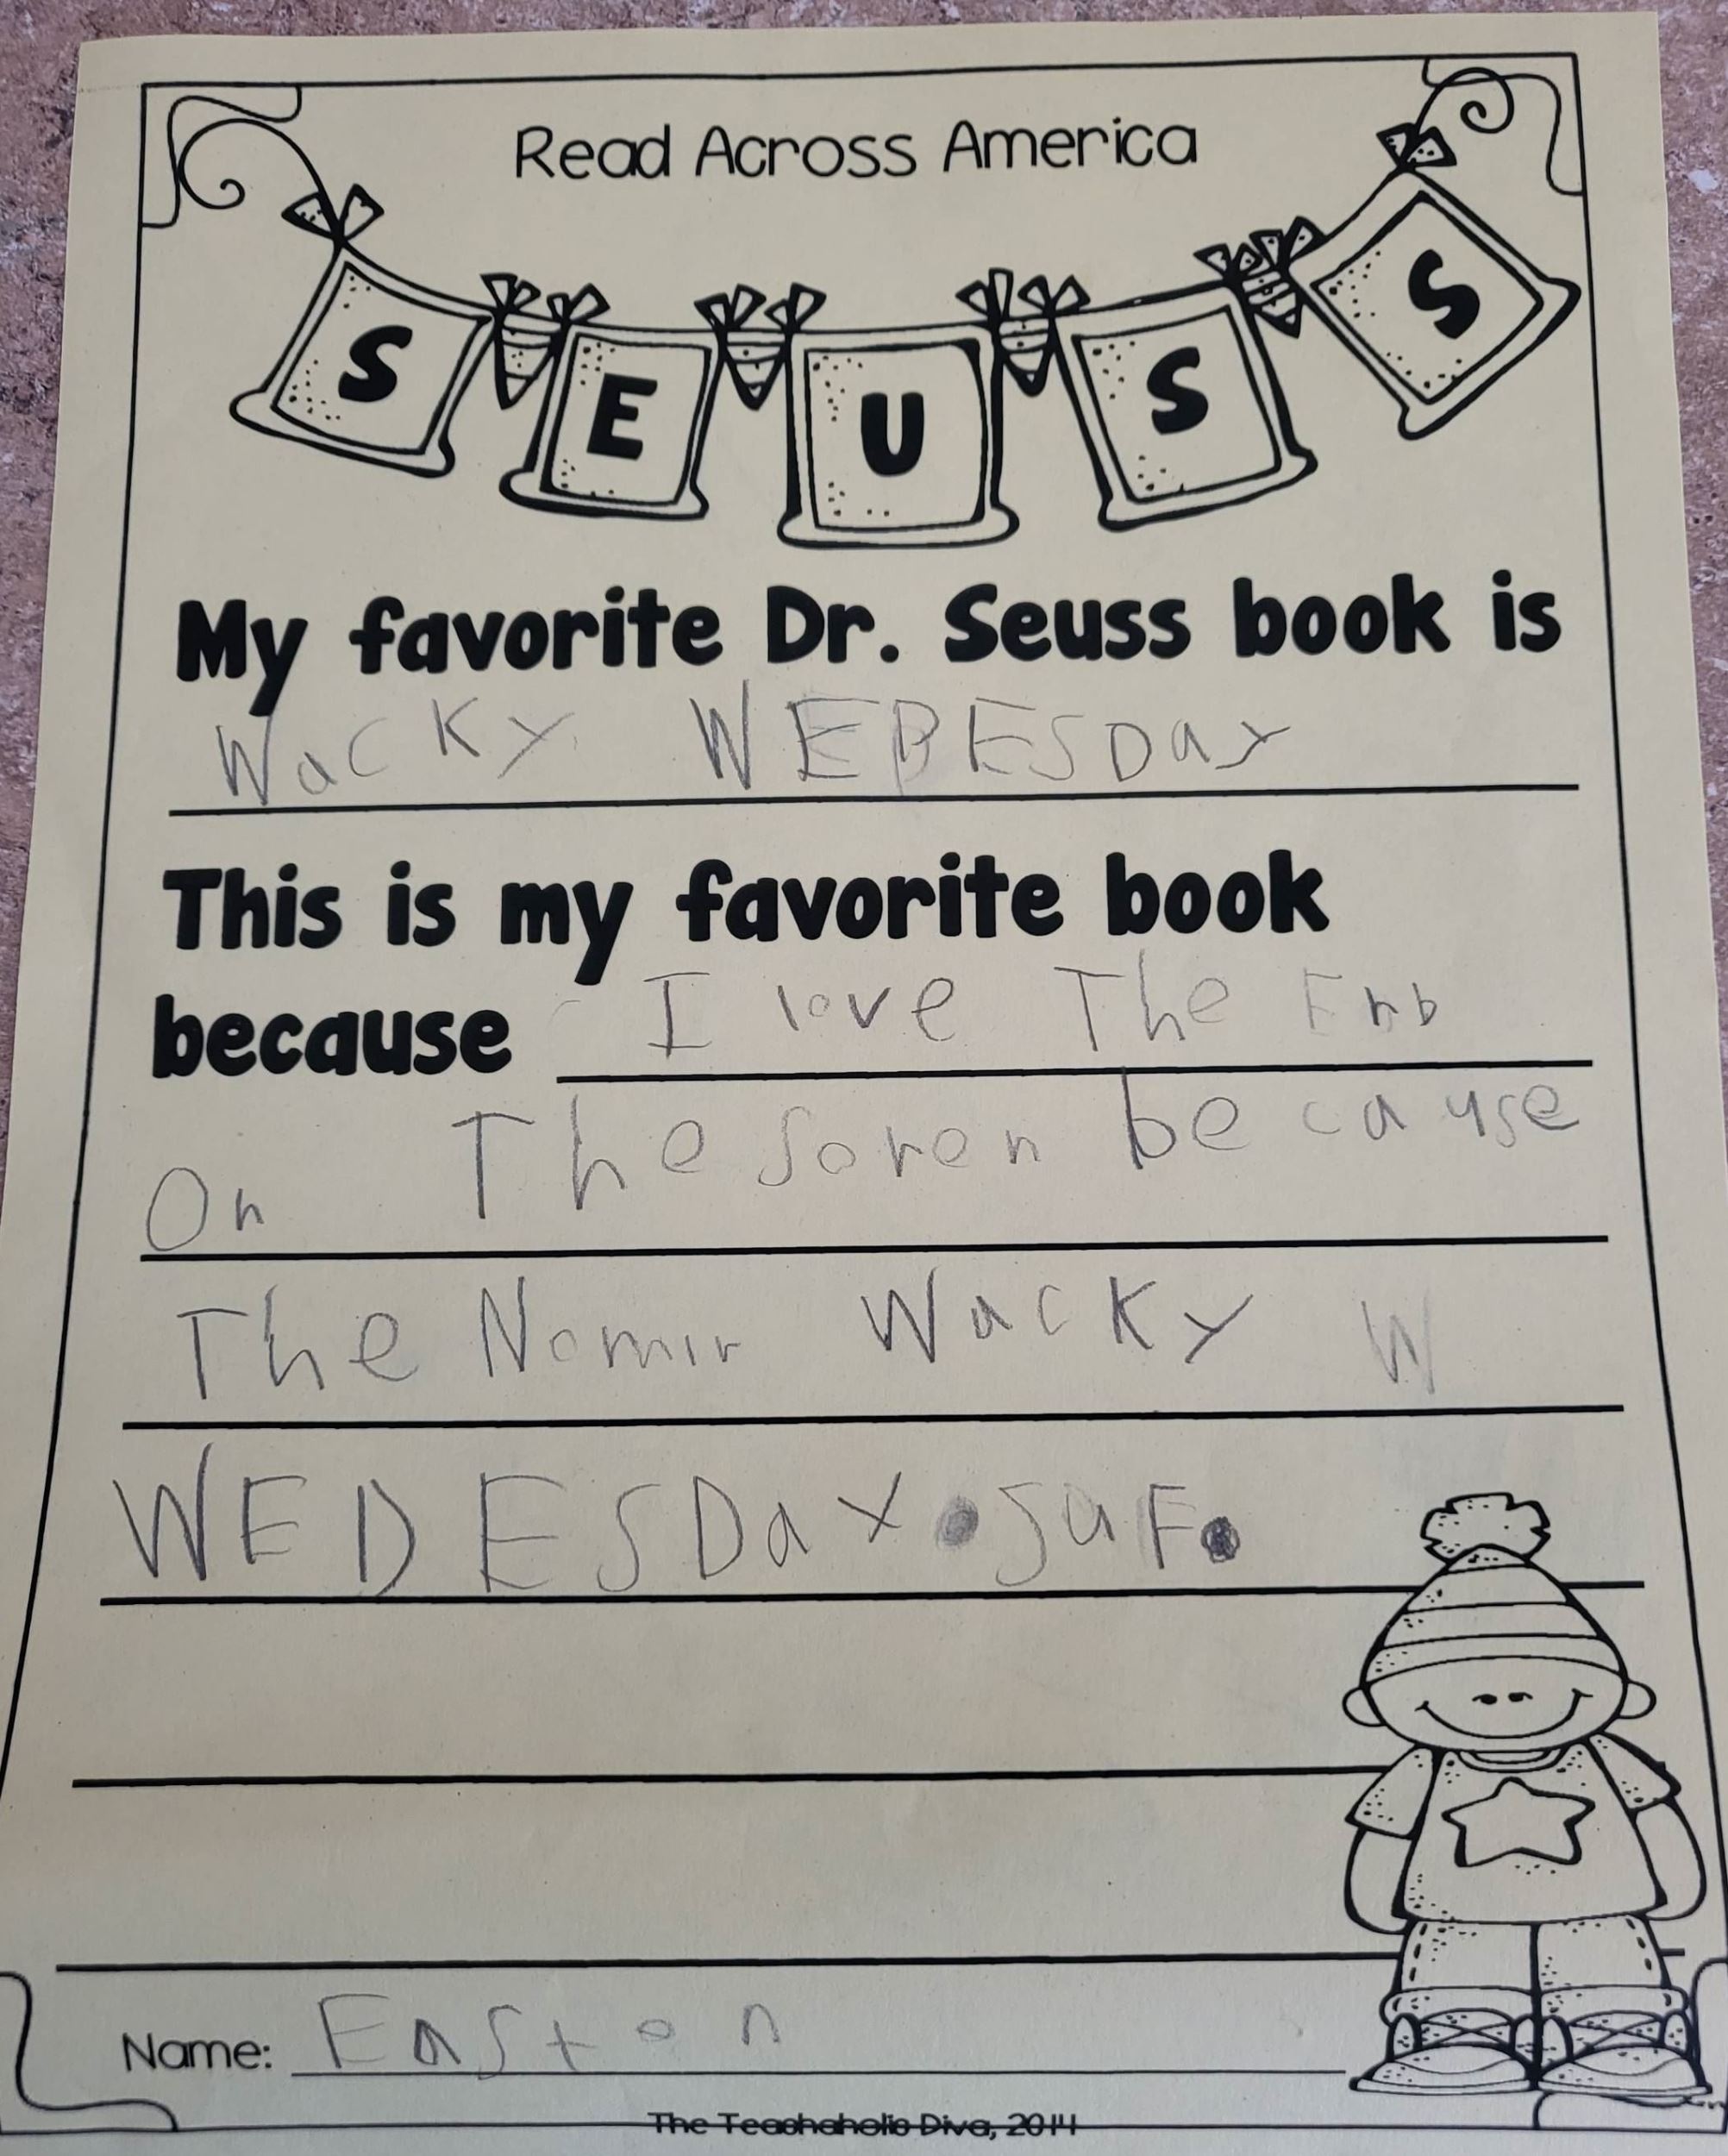 Read Across America
S E U S S
My favorite Dr. Seuss book is
Wacky WEBESDay
This is my favorite book
because I love The Enb
On The soren because
The Nomir Wacky W
WEDESDay. SuF.
Name: Easton
The Teachaholic Diva, 2014